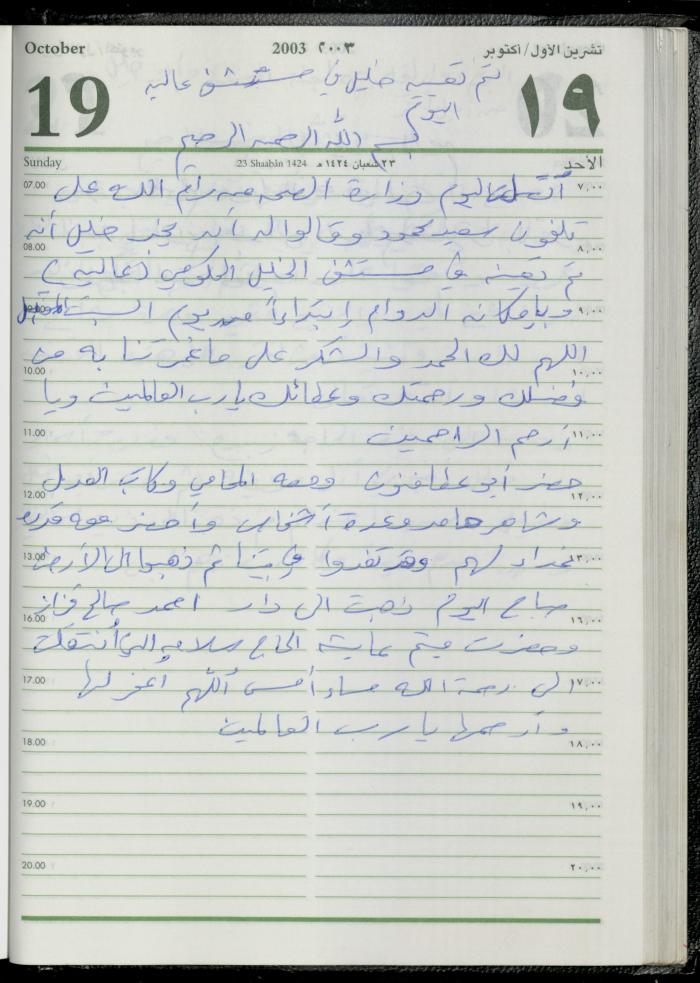 October 2003 ٢٠٠٣ تشرين الأول/أكتوبر
تم تعيين خليل في مستشفى عاليه
19 اليوم ١٩
بسم الله الرحمن الرحيم
Sunday 23 Shaabān 1424 ٢٣ شعبان ١٤٢٤ هـ الأحد
07.00 اليوم وزارة الصحة من رام الله على ٧,٠٠
تلفون سعيد محمود وقالوا له أن يخبر خليل أنه
08.00 ٨,٠٠
تم تعيينه في مستشفى الخليل الحكومي (عاليه)
09.00 وبإمكانه الدوام إبتداءاً من يوم السبت المقبل ٩,٠٠
اللهم لك الحمد والشكر على ما غمرتنا به من
10.00 ١٠,٠٠
فضلك ورحمتك وعطائك يا رب العالمين ويا
11.00 أرحم الراحمين ١١,٠٠
حضر أبو عطا ومعه المحامي وكاتب العدل
12.00 ١٢,٠٠
وشاهر حامد وعدة أشخاص وأحضر معه
13.00 غداء لهم وقد تغدوا في بيتنا ثم ذهبوا الى الأرض ١٣,٠٠
صباح اليوم ذهبت الى دار احمد صالح قزاز
16.00 ١٦,٠٠
وحضرت ميتم عايشة الحاج سلامه التي أنتقلت
17.00 الى رحمة الله مساء أمس أللهم أغفر لها ١٧,٠٠
وأرحمها يا رب العالمين
18.00 ١٨,٠٠
19.00 ١٩,٠٠
20.00 ٢٠,٠٠